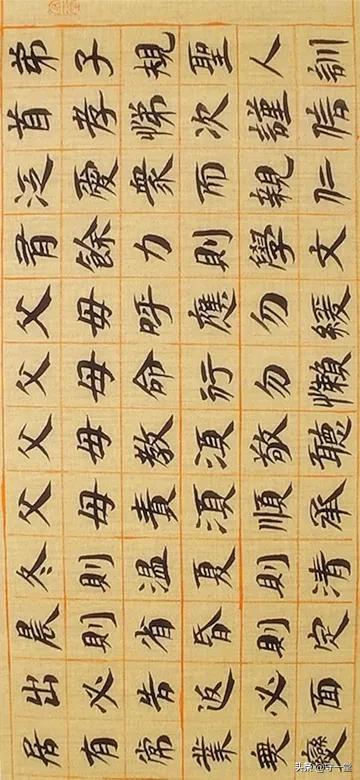 弟子規聖人訓
首孝悌次謹信
泛愛衆而親仁
有餘力則學文
父母呼應勿緩
父母命行勿懶
父母教須敬聽
父母責須順承
冬則温夏則清
晨則省昏則定
出必告返必面
居有常業無變
头条@守一堂